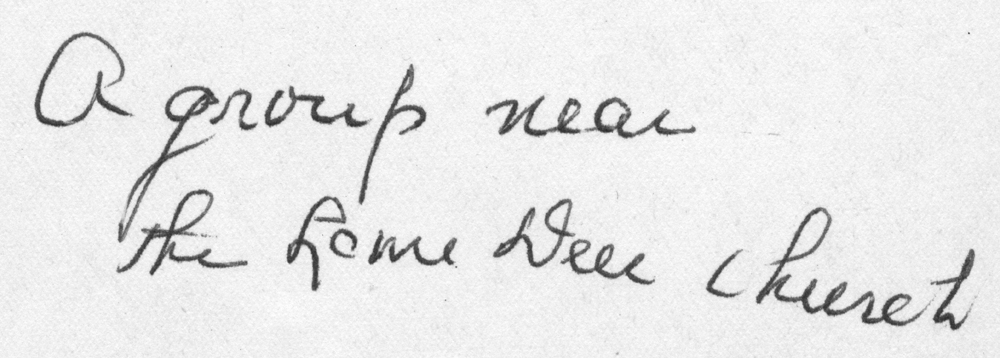 A group near
the Lame Deer church